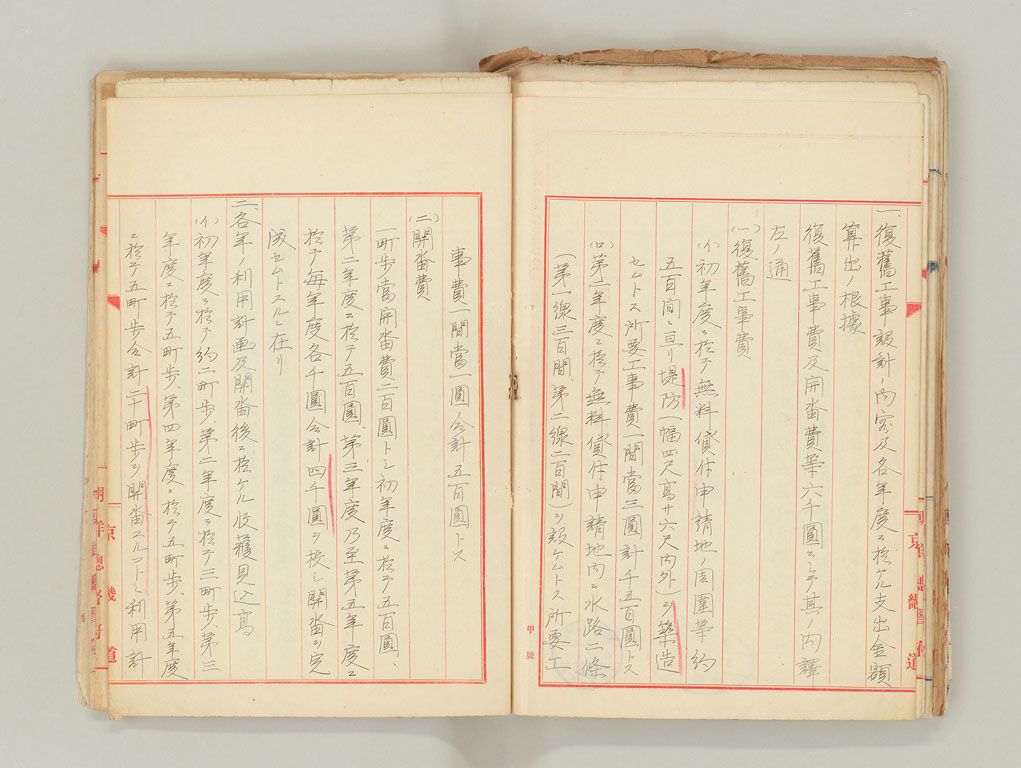 一、復舊工事設計ノ內容及各年度ニ於ケル支出金額
算出ノ根據
復舊工事費及開畓費等六千圓ニシテ其ノ內譯
左ノ通
(一)復舊工事費
(イ)初年度ニ於テ無料貸付申請地ノ周圍等約
五百間ニ亘リ堤防(幅四尺高サ六尺內外)ヲ築造
セムトス所要工事費一間當三圓計千五百圓トス
(ロ)第二年度ニ於テ無料貸付申請地內ニ水路二條
(第一線三百間、第二線二百間)ヲ設ケムトス所要工
事費一間當一圓ノ合計五百圓トス
(二)開畓費
一町步當開畓費二百圓トシ初年度ニ於テ五百圓、
第二年度ニ於テ五百圓、第三年度乃至第五年度ニ
於テ每年度各千圓合計四千圓ヲ投シ開畓ヲ完
成セムトスルニ在リ
二、各年ノ利用計畫及開畓後ニ於ケル收穫見込高
(イ)初年度ニ於テ約二町步、第二年度ニ於テ三町步、第三
年度ニ於テ五町步、第四年度ニ於テ五町步、第五年度
ニ於テ五町步合計二十町步ヲ開畓スルコトニ利用計
甲號
京畿道